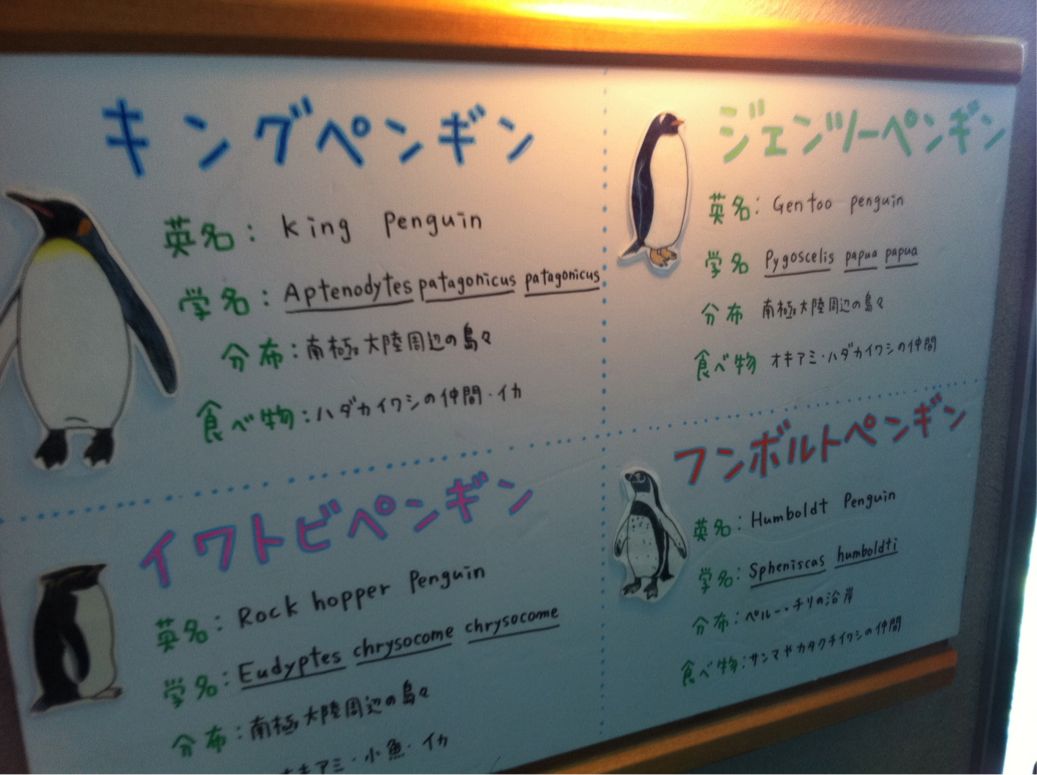 キングペンギン
英名：king penguin
学名：Aptenodytes patagonicus patagonicus
分布：南極大陸周辺の島々
食べ物：ハダカイワシの仲間・イカ
ジェンツーペンギン
英名：Gentoo penguin
学名 Pygoscelis papua papua
分布 南極大陸周辺の島々
食べ物 オキアミ・ハダカイワシの仲間
イワトビペンギン
英名：Rock hopper Penguin
学名：Eudyptes chrysocome chrysocome
分布：南極大陸周辺の島々
オキアミ・小魚・イカ
フンボルトペンギン
英名：Humboldt Penguin
学名：Spheniscas humboldti
分布：ペルー・チリの沿岸
食べ物：サンマやカタクチイワシの仲間